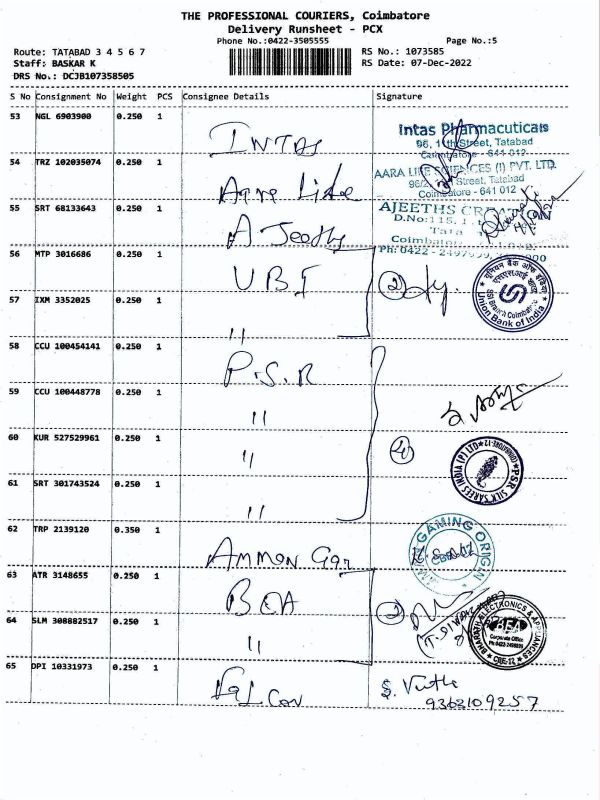 THE PROFESSIONAL COURIERS, Coimbatore
Delivery Runsheet - PCX
Phone No.:0422-3505555
Page No.:5
Route: TATABAD 3 4 5 6 7
RS No.: 1073585
Staff: BASKAR K
RS Date: 07-Dec-2022
DRS No.: DCJB107358505
S No Consignment No Weight PCS Consignee Details Signature
53 NGL 6903900 0.250 1 INTAS
Intas Pharmaceuticals
96, 11th Street, Tatabad
Coimbatore - 641 012
54 TRZ 102035074 0.250 1 Aara Life
AARA LIFE SCIENCES (I) PVT. LTD.
Street, Tatabad
Coimbatore - 641 012
55 SRT 68133643 0.250 1 A Jeeths
AJEETHS CREATION
D.No:
Coimbatore
Ph: 0422 -
56 MTP 3016686 0.250 1 UBI
2
Union Bank of India
57 IXM 3352025 0.250 1 "
58 CCU 100454141 0.250 1 P.S.R
59 CCU 100448778 0.250 1 "
60 KUR 527529961 0.250 1 "
4
P.S.R. SILK SAREES INDIA (P) LTD
61 SRT 301743524 0.250 1 "
62 TRP 2139120 0.350 1 Ammon Gar
GAMING ORIGIN
63 ATR 3148655 0.250 1 BEA
2
BHARATH ELECTRONICS & APPLIANCES
BEA
Corporate Office
CBE-12
64 SLM 308882517 0.250 1 "
65 DPI 10331973 0.250 1 Falcon
9363109257